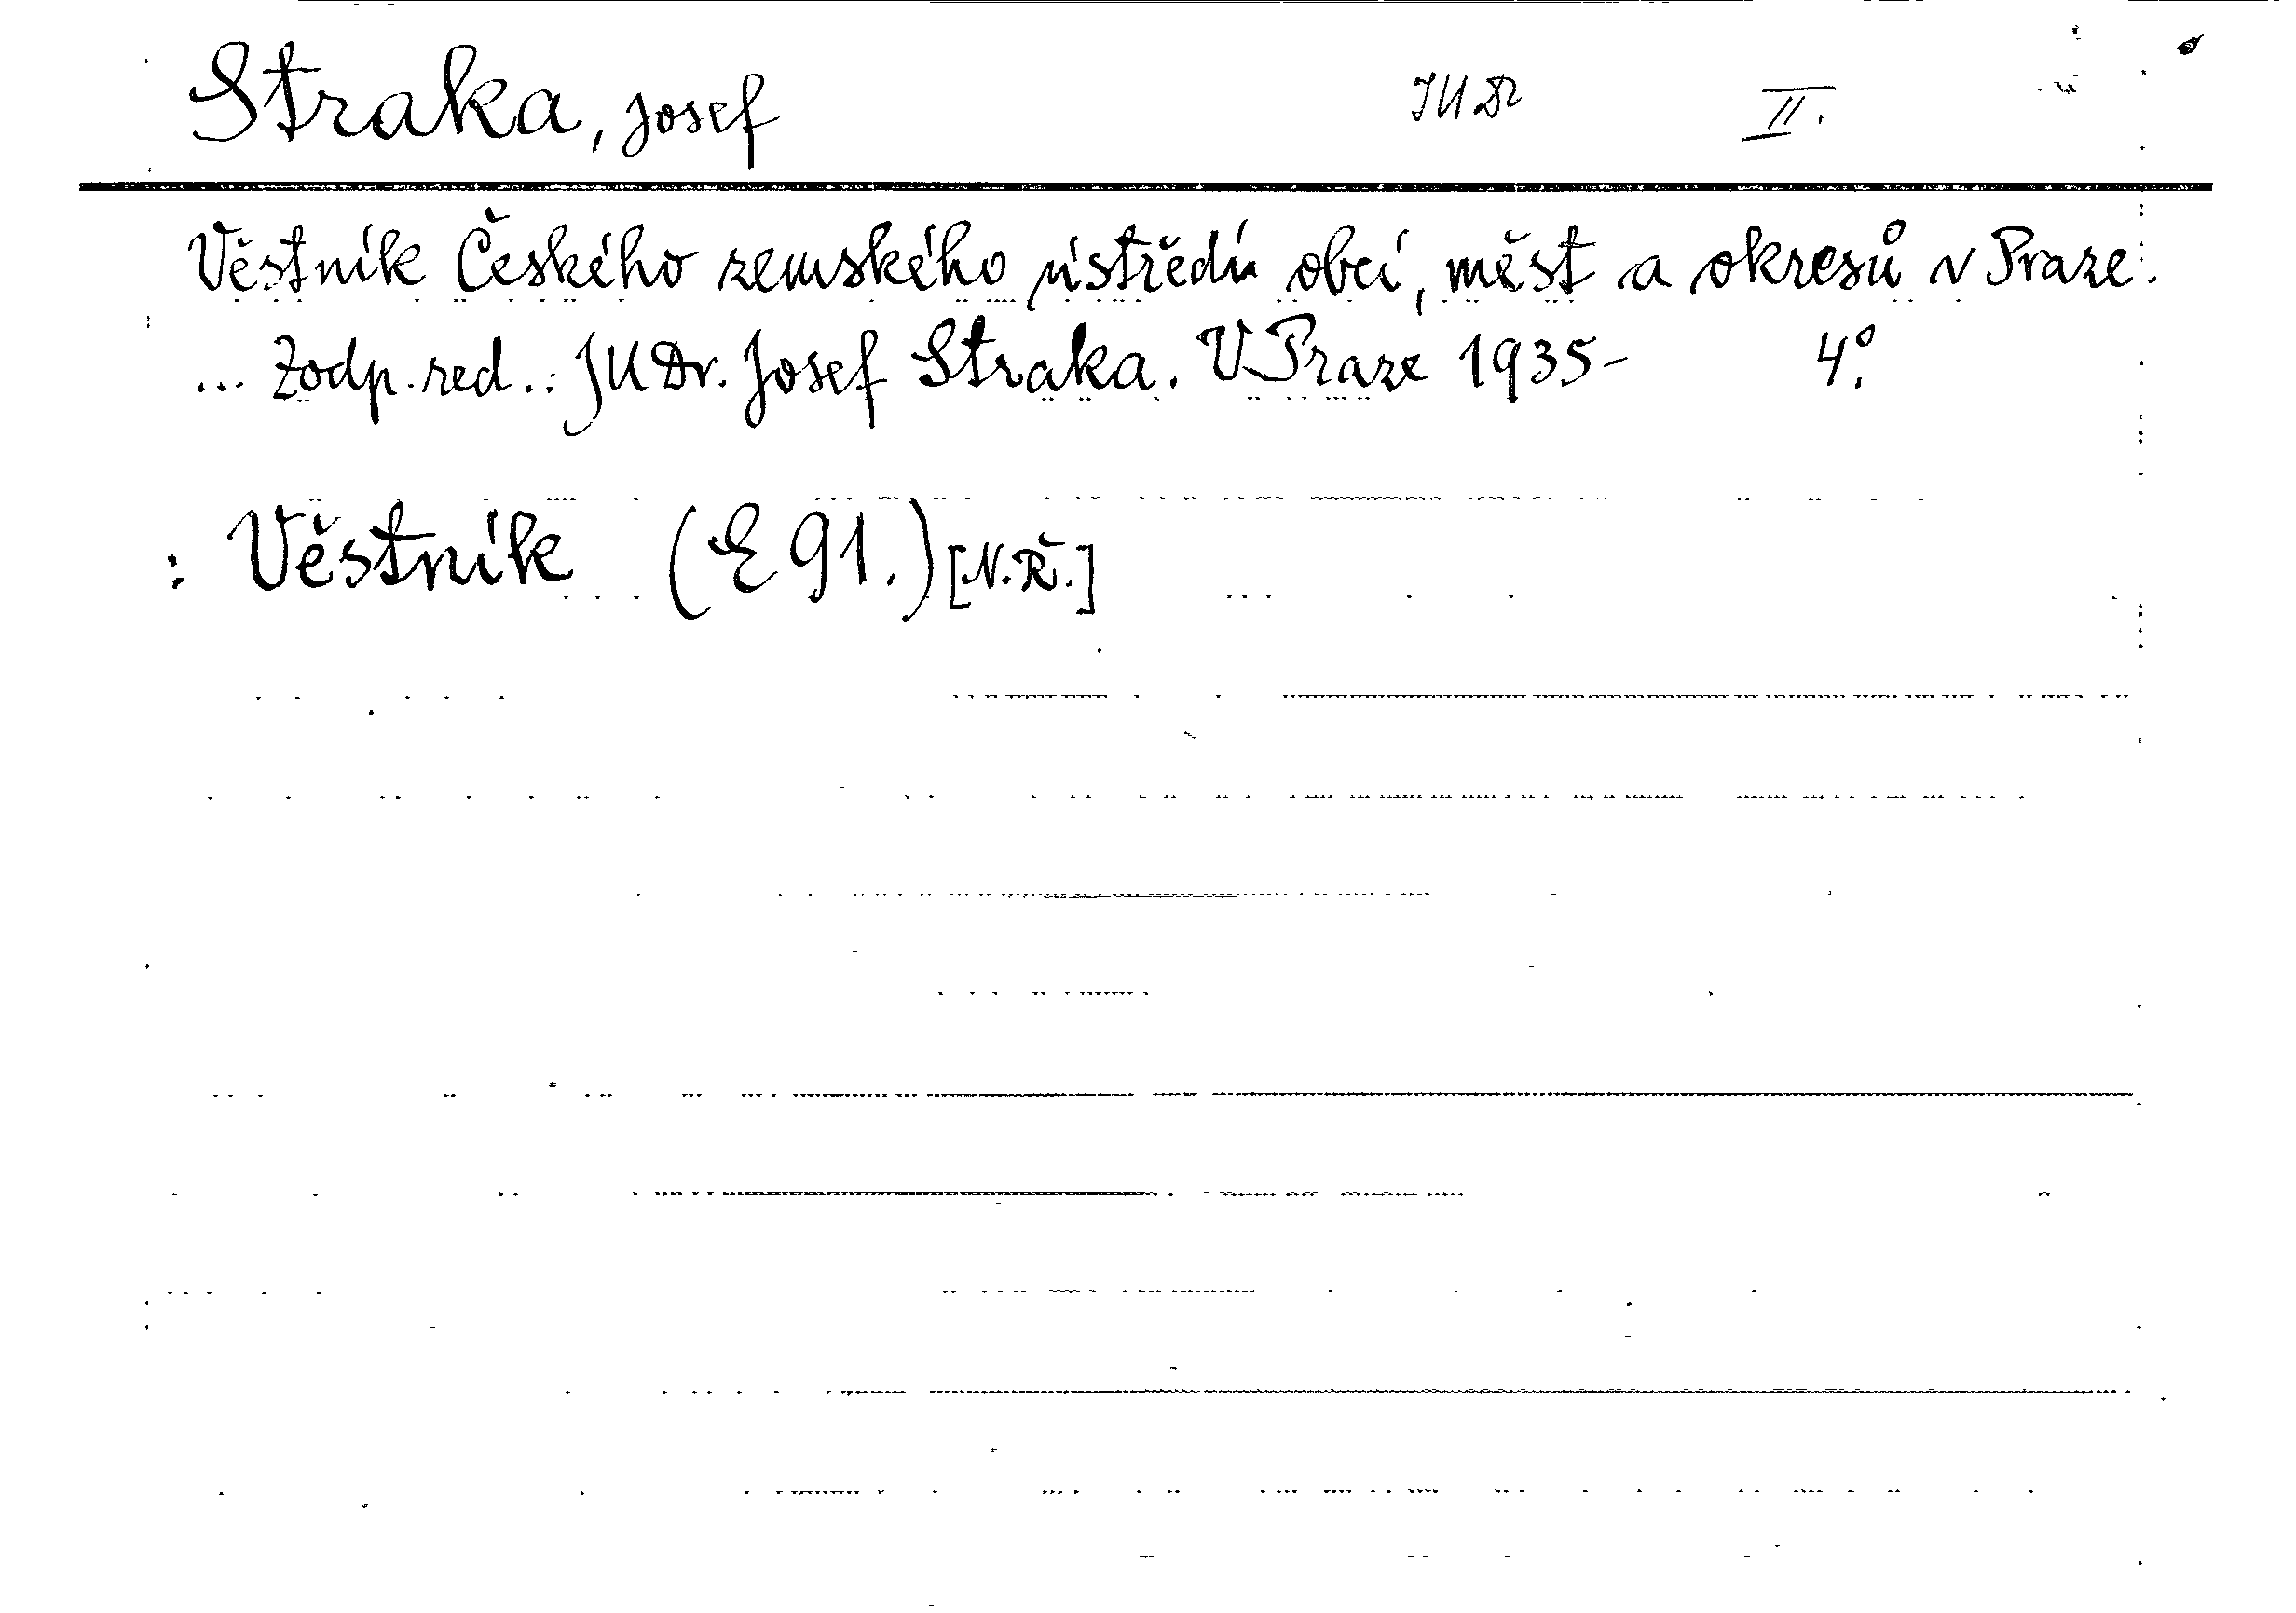 Straka, Josef JUDr II.
Věstník Českého zemského ústředí obcí, měst a okresů v Praze.
... Zodp. red.: JUDr. Josef Straka. V Praze 1935- 4°.
: Věstník (E 91.) [N.Ř.]